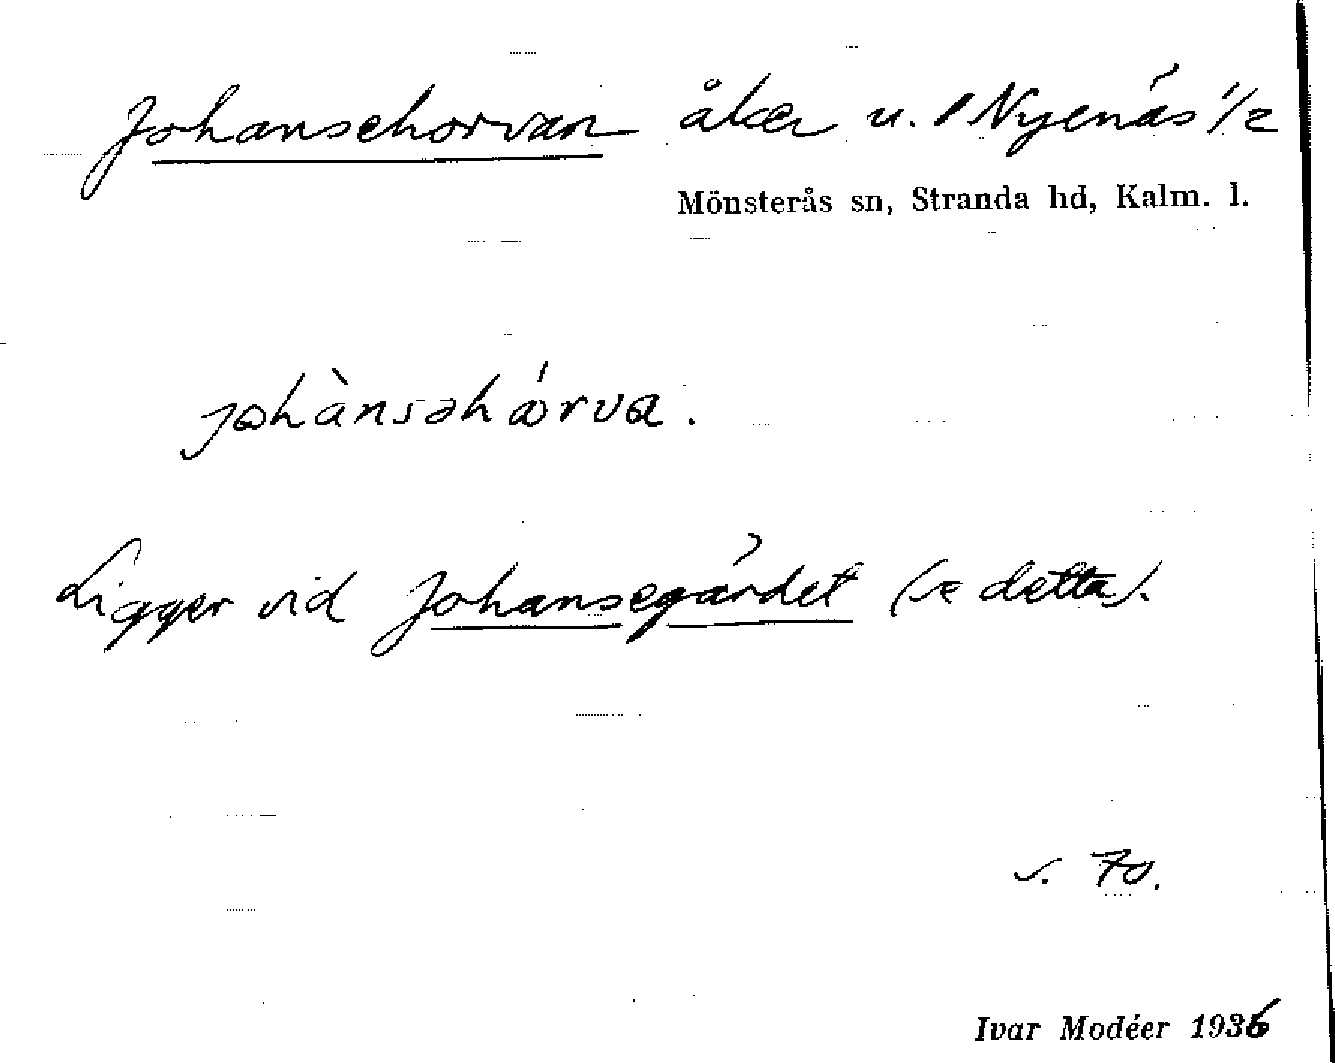 Johansehorvan åker u. Nyenäs 1/2
Mönsterås sn, Stranda hd, Kalm. l.
johànsəhórva.
Ligger vid Johansegärdet (se detta).
s. 70.
Ivar Modéer 1936